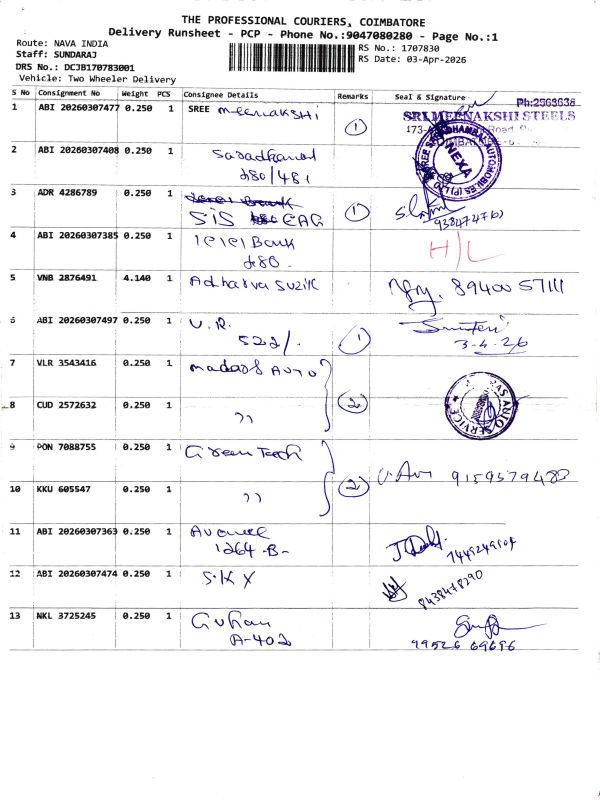 THE PROFESSIONAL COURIERS, COIMBATORE
Delivery Runsheet - PCP - Phone No.:9047080280 - Page No.:1
Route: NAVA INDIA
Staff: SUNDARAJ
DRS No.: DCJB170783001
Vehicle: Two Wheeler Delivery
RS No.: 1707830
RS Date: 03-Apr-2026
S No Consignment No Weight PCS Consignee Details Remarks Seal & Signature
Ph:2563636
1 ABI 20260307477 0.250 1 SREE meenakshi 1
SRI MEENAKSHI STEELS
2 ABI 20260307408 0.250 1
480/481
NEXA
3 ADR 4286789 0.250 1
SIS CAG 1
4 ABI 20260307385 0.250 1 ICICI Bank H/L
480.
5 VNB 2876491 4.140 1 Adharva Suzik 89400 57111
6 ABI 20260307497 0.250 1 U.R.
522/. 1
3-4-26
7 VLR 3543416 0.250 1 madras AUTO
8 CUD 2572632 0.250 1 ,, 2
MADRAS AUTO SERVICE
9 PON 7088755 0.250 1 Green Tech
2 9159579480
10 KKU 605547 0.250 1 ,,
11 ABI 20260307363 0.250 1
1264-B-
12 ABI 20260307474 0.250 1 S.K X
8438478290
13 NKL 3725245 0.250 1 Guhan
A-402
99526 69696